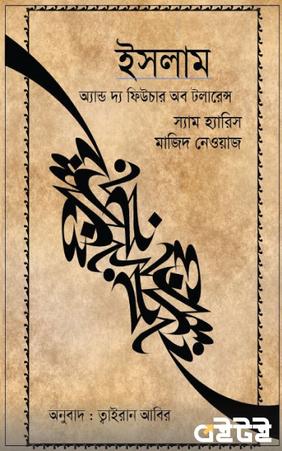 ইসলাম
অ্যান্ড দ্য ফিউচার অব টলারেন্স
স্যাম হ্যারিস
মাজিদ নেওয়াজ
অনুবাদ : ত্বাইরান আবির